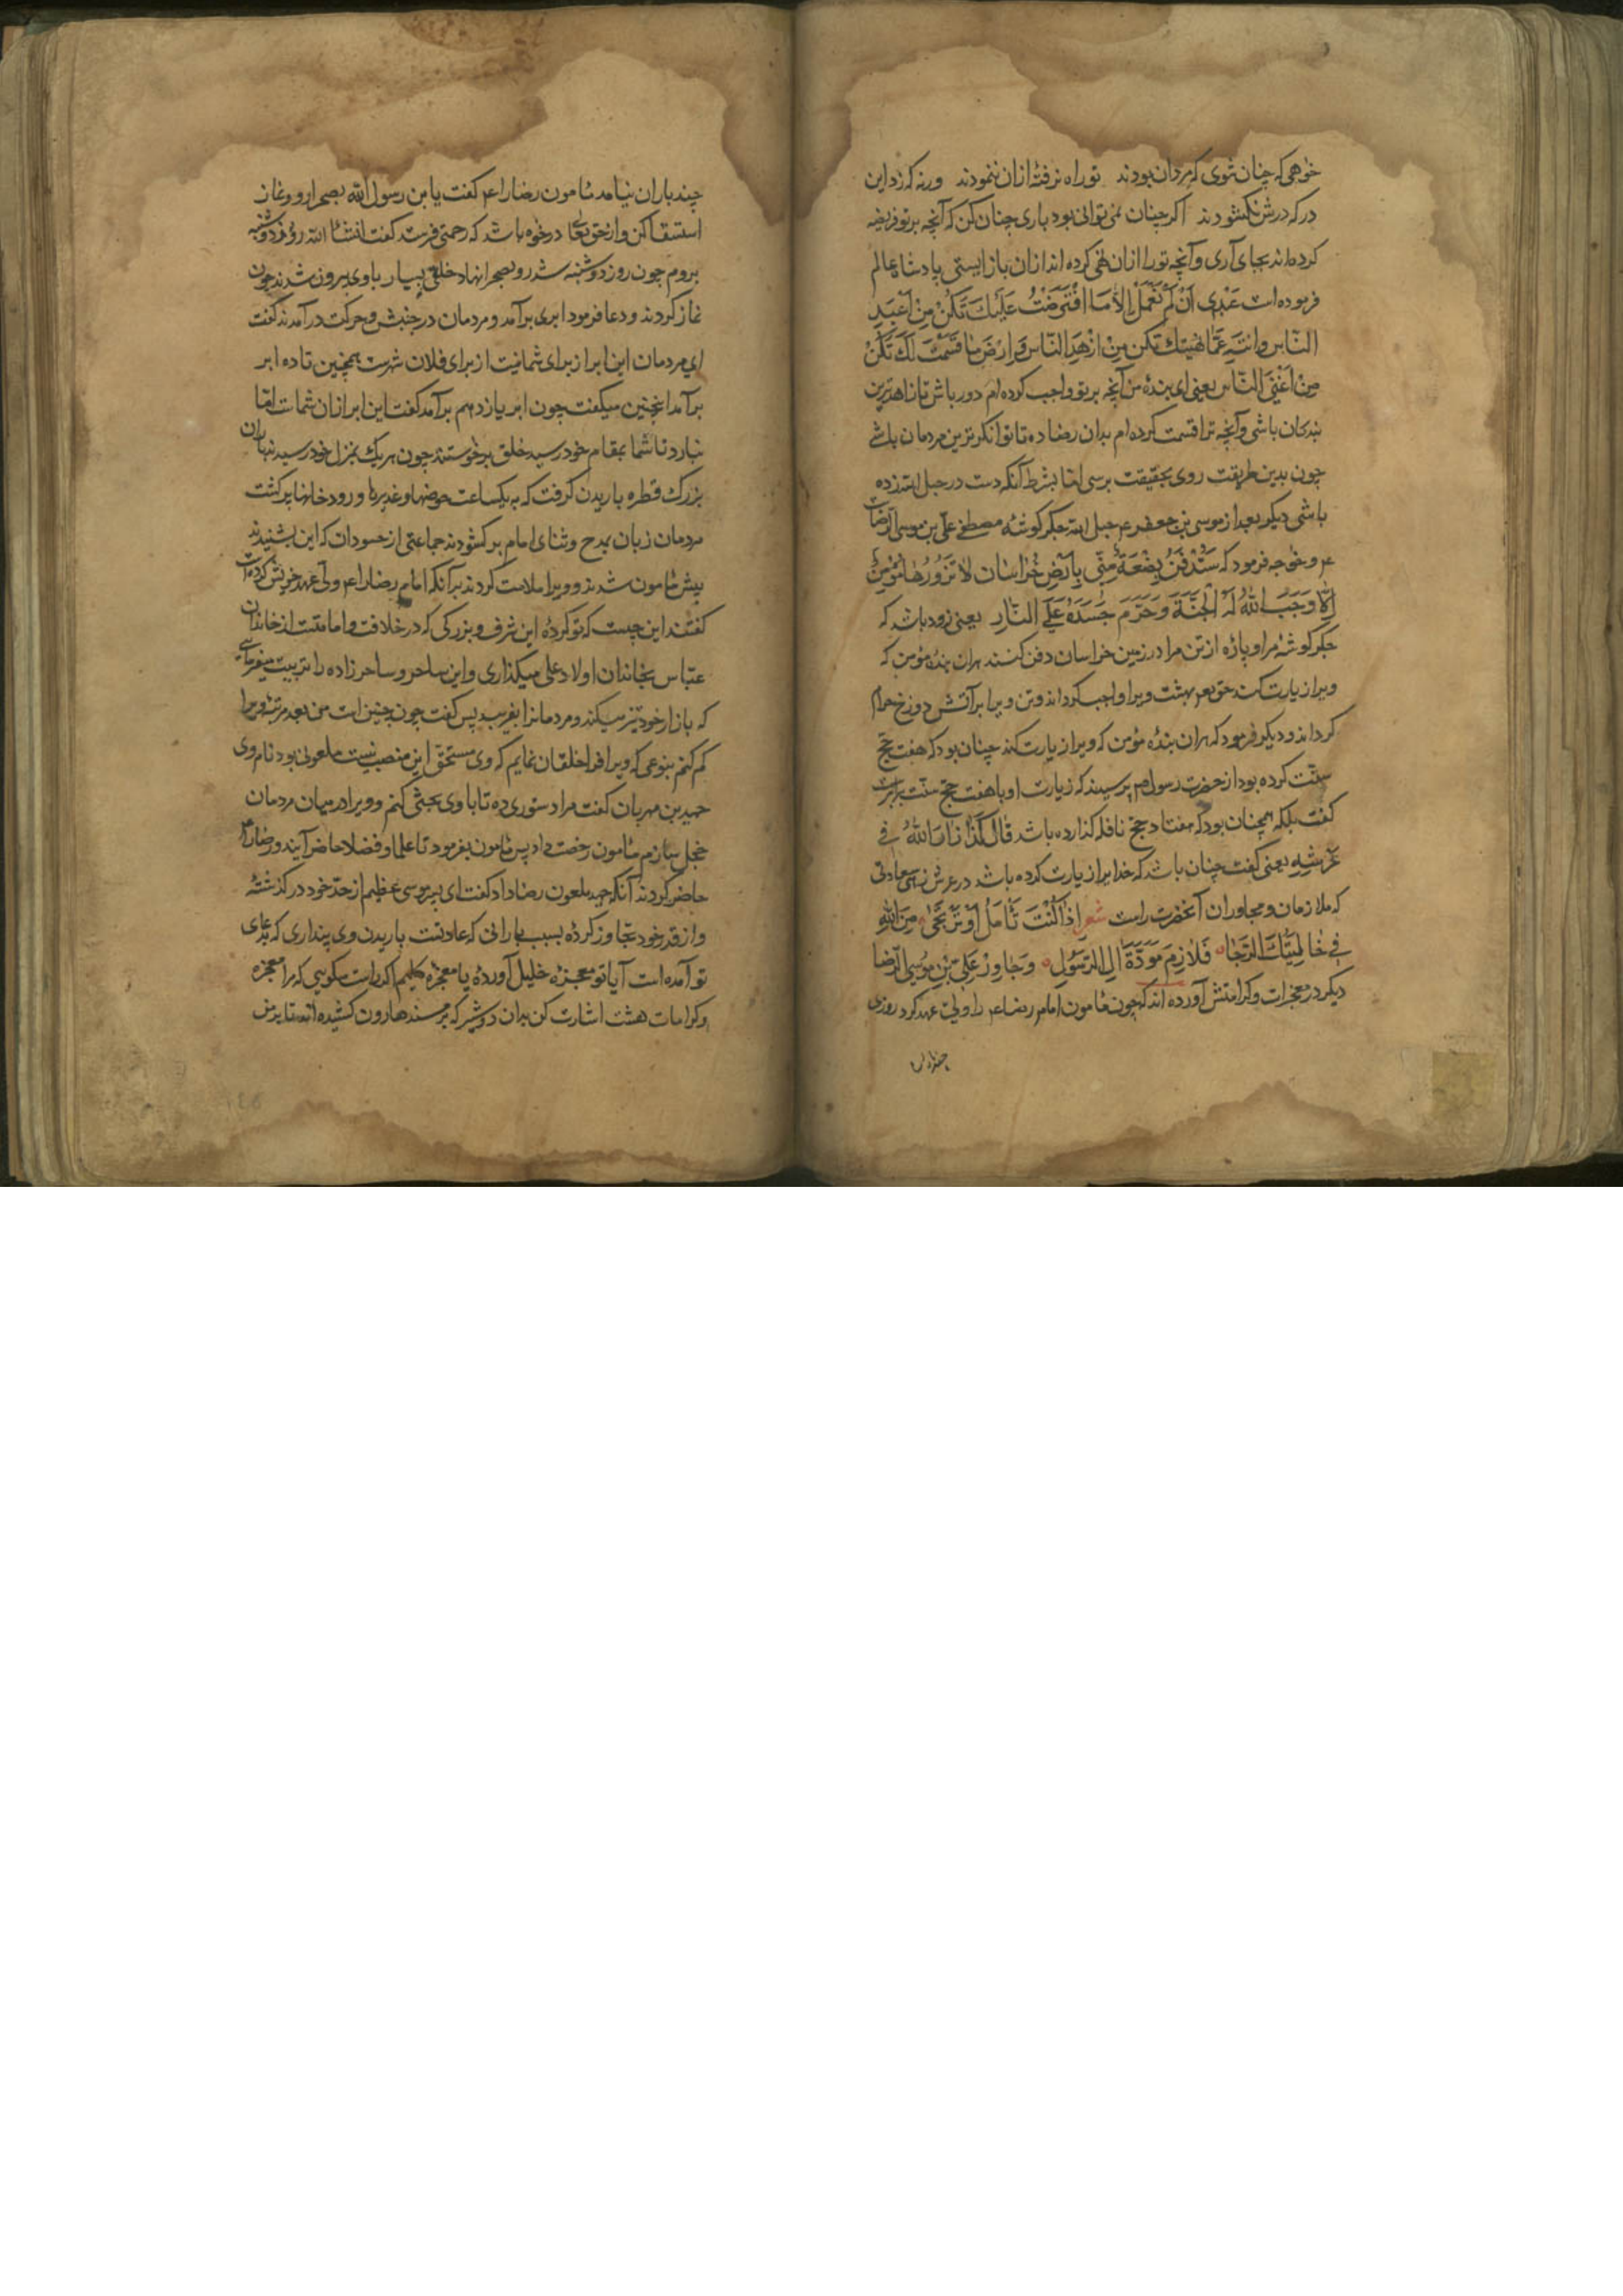 خواهی که چنان شوی که مردان بودند تو راه نرفتهٔ ازان ننمودند ورنه که زد این
در که درش نکشودند اکر چنان نمی توانی بود باری چنان کن که آنچه بر تو فریضه
کرده‌اند بجای آری و آنچه تو را ازان نهی کرده اند ازان باز ایستی پادشاه عالم
فرموده است عَبْدِی اَنْ لَمْ تَعْمَلْ اِلّا مَا افْتَرَضْتُ عَلَیْكَ تَكُنْ مِنْ اَعْبَدِ
النّاس وانتهِ عَمّا نَهَیْتُكَ تَكُن مِنْ اَزْهَدِ النّاسِ وَارْضَ مَا قَسَمْتُ لَكَ تَكُنْ
مِنْ اَغْنَی النّاس یعنی ای بندهٔ من آنچه بر تو واجب کرده‌ام دور باش تا زاهدترین
بندکان باشی و آنچه ترا قسمت کرده‌ام بدان رضا ده تا توانکرترین مردمان باشی
چون بدین طریقت روی بحقیقت برسی اما بشرط آنکه دست در حبل الله زده
باشی دیکر بعد از موسی بن جعفر ع‍م حبل الله جکر کوشهٔ مصطفی علی بن موسی الرضاست
ع‍م و خواجه فرمود که سَتُدْفَنُ بِضْعَةٌ مِنّی بِاَرْضِ خُراسَان لا تَزُورُهَا مُؤْمِنٌ
اِلّا وَجَبَ اللهُ لَهُ الْجَنَّةَ وَحَرَّمَ جَسَدَهُ عَلَی النّارِ یعنی زود باشد که
جکر کوشهٔ مرا و پارهٔ از تن مرا در زمین خراسان دفن کنند هران بندهٔ مؤمن که
ویرا زیارت کند حق تعم بهشت ویرا واجب کرداند و تن ویرا بر آتش دوزخ حرام
کرداند و دیکر فرمود که هران بندهٔ مؤمن که ویرا زیارت کند چنان بود که هفت حج
سنّت کرده بود از حضرت رسول ص‍م پرسیدند که زیارت او با هفت حج سنت برابرست
کفت بلکه همچنان بود که هفتاد حج نافله کذارده باشد قالَ كَذَا زَارَ اللهُ فی
عَرْشِهِ یعنی کفت چنان باشد که خدایرا زیارت کرده باشد در عرش زهی سعادتی
که ملازمان و مجاوران آنحضرت راست شعر اِذَا كُنْتَ تَأمَلُ اَوْ تَرْتَجَی مِنَ اللهِ
فی حَالَتَیْكَ الرّجَا فَلازِم مَوَدَّةَ الِ الرّسُولِ وَجَاوِرْ عَلیَّ بْنِ مُوسَی الرّضا
دیکر در معجزات و کرامتش آورده اند که چون مأمون امام رضا ع‍م را ولی عهد کرد روزی
چند باران
چند باران نیامد مأمون رضا را ع‍م کفت یابن رسول الله بصحرا رو و نماز
استسقا کن و از حق تعالی درخواه باشد که رحمتی فرستد کفت انشأ الله روز دوشنبه
بروم چون روز دوشنبه شد رو بصحرا نهاد خلقی بسیار با وی بیرون شدند چون
نماز کردند و دعا فرمود ابری برآمد و مردمان در جنبش و حرکت درآمدند کفت
ای مردمان این ابر از برای شما نیست از برای فلان شهرست همچنین تا ده ابر
برآمد اینچنین میکفت چون ابر یازدهم برآمد کفت این ابر ازان شماست اما
نبارد تا شما بمقام خود رسید خلق برخواستند چون هر یك بمنزل خود رسیدند باران
بزرك قطره باریدن کرفت که بیکساعت حوضها و غدیرها و رودخانها پر کشت
مردمان زبان بمدح و ثنای امام برکشودند جماعتی از حسودان که این بشنیدند
پیش مأمون شدند و ویرا ملامت کردند برآنکه امام رضا را ع‍م ولی عهد خویش کرده است
کفتند این چیست که تو کردهٔ این شرف و بزرکی که در خلافت و امامتست از خاندان
عبّاس بخاندان اولاد علی میکذاری و این ساحر و ساحرزاده را تربیت میفرمائی
که بازار خود تیز میکند و مردمانرا بفریبد پس کفت چون چنین است من بعد مرتبهٔ ویرا
کم کنم بنوعی که ویرا فرا خلقان نمایم که وی مستحق این منصب نیست ملعونی بود نام وی
حمید بن مهربان کفت مرا دستوری ده تا با وی بحثی کنم و ویرا در میان مردمان
خجل سازم مأمون رخصت داد پس مأمون بفرمود تا علما و فضلا حاضر آیند و رضا را ع‍م
حاضر کردند آنکه حمید ملعون رضا را کفت ای پسر موسی عظیم از حدّ خود درکذشتهٔ
و از قدر خود تجاوز کردهٔ بسبب بارانی که عادتست باریدن وی پنداری که بدعای
تو آمده است آیا تو معجزهٔ خلیل آوردهٔ یا معجزهٔ کلیم اکر راست میکویی که مرا معجزه
و کرامات هست اشارت کن بدان دو شیر که بر مسند هارون کشیده اند تا پرش